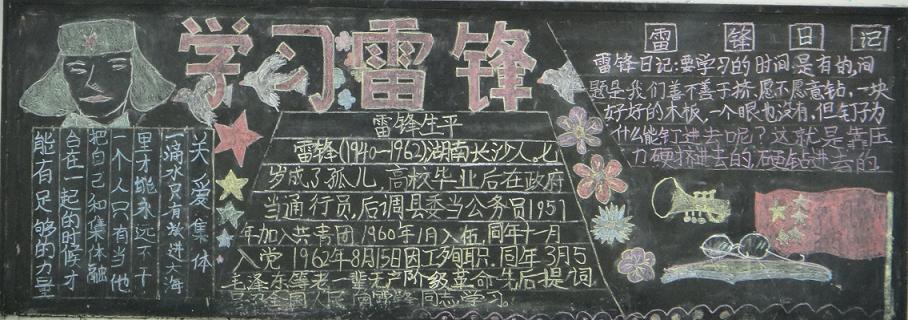 学习雷锋
关爱集体
一滴水只有放进大海
里才能永远不干
一个人只有当他
把自己和集体融
合在一起的时候才
能有足够的力量
雷锋生平
雷锋(1940-1962)湖南长沙人,七
岁成了孤儿,高校毕业后在政府
当通行员,后调县委当公务员1957
年加入共青团,1960年1月入伍,同年十一月
入党 1962年8月15日因工殉职.同年3月5
毛泽东等老一辈无产阶级革命先后提词
号召全国人民向雷锋同志学习.
雷锋日记
雷锋日记:要学习的时间是有的,问
题是我们善不善于挤,愿不愿意钻,一块
好好的木板,一个眼也没有,但钉子为
什么能钉进去呢?这就是靠压
力硬挤进去的,硬钻进去的